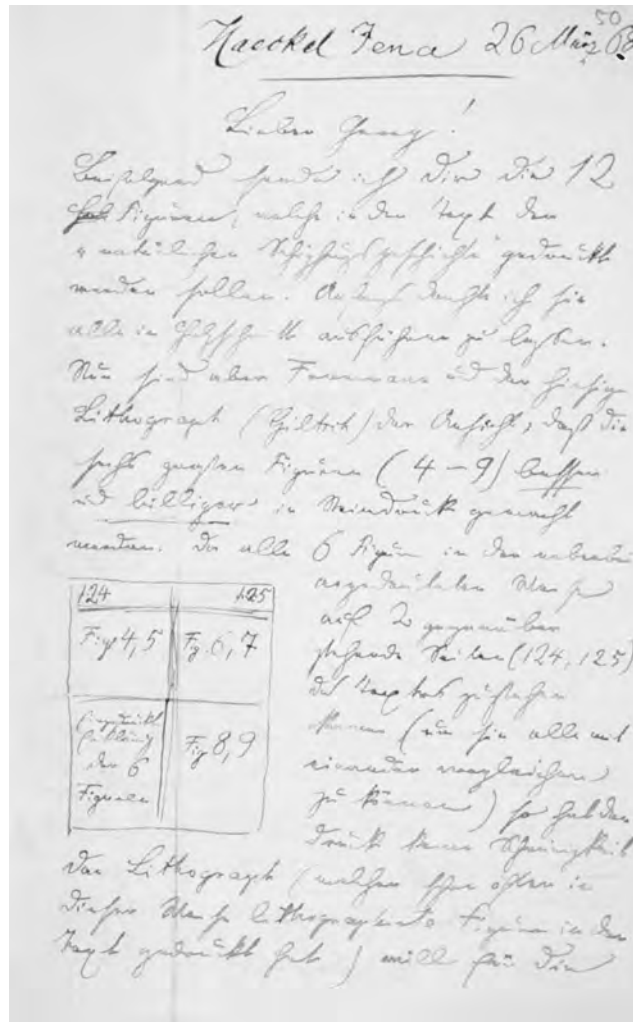 50
Haeckel Jena 26 März 68
Lieber Georg!
Beifolgend sende ich Dir die 12
Figuren, welche in den Text der
"natürlichen Schöpfungsgeschichte" gedruckt
werden sollen. Anfangs dachte ich sie
alle in Holzschnitt ausführen zu lassen.
Nun sind aber Frommann und der hiesige
Lithograph (Giltsch) der Ansicht, daß die
sechs großen Figuren (4–9) besser
und billiger in Steindruck gemacht
werden. Da alle 6 Figuren in der
angedeuteten Weise
auf 2 gegenüber
stehende Seiten (124, 125)
des Textes zu stehen
kommen (um sie alle mit
einander vergleichen
zu können) so hat der
Druck keine Schwierigkeit
124 125
Fig 4, 5 Fig. 6, 7
Erklärung
der 6
Figuren
Fig 8, 9
Der Lithograph (welcher schon öfter in
dieser Weise lithographirte Figuren in den
Text gedruckt hat) will für die